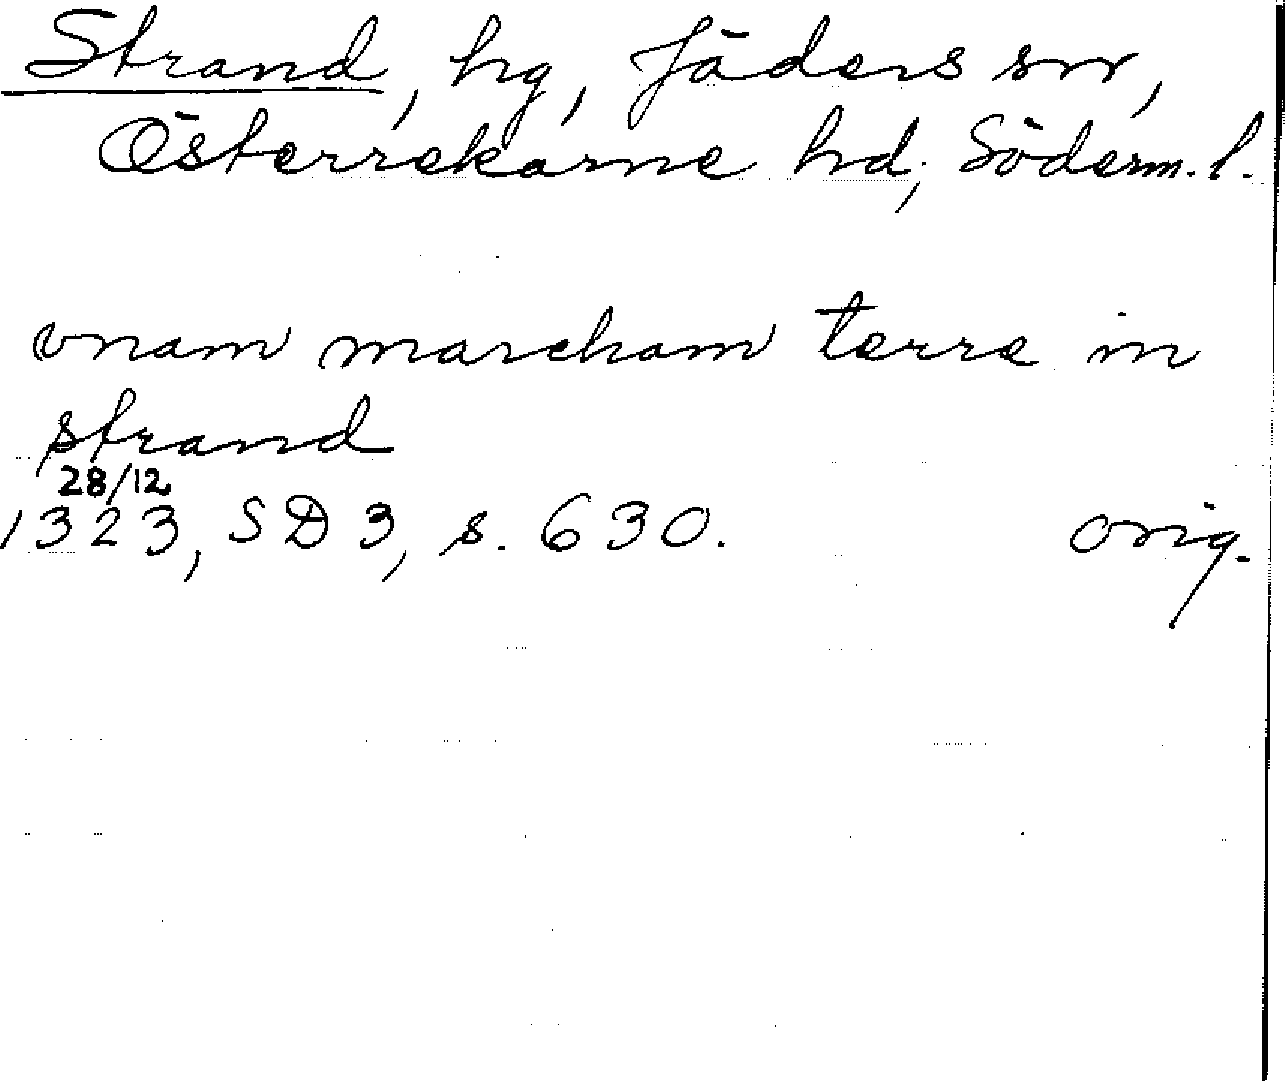 Strand, hg, Jäders sn,
Österrekarne hd, Söderm. l.
vnam marcham terre in
strand
28/12
1323, SD 3, s. 630. orig.